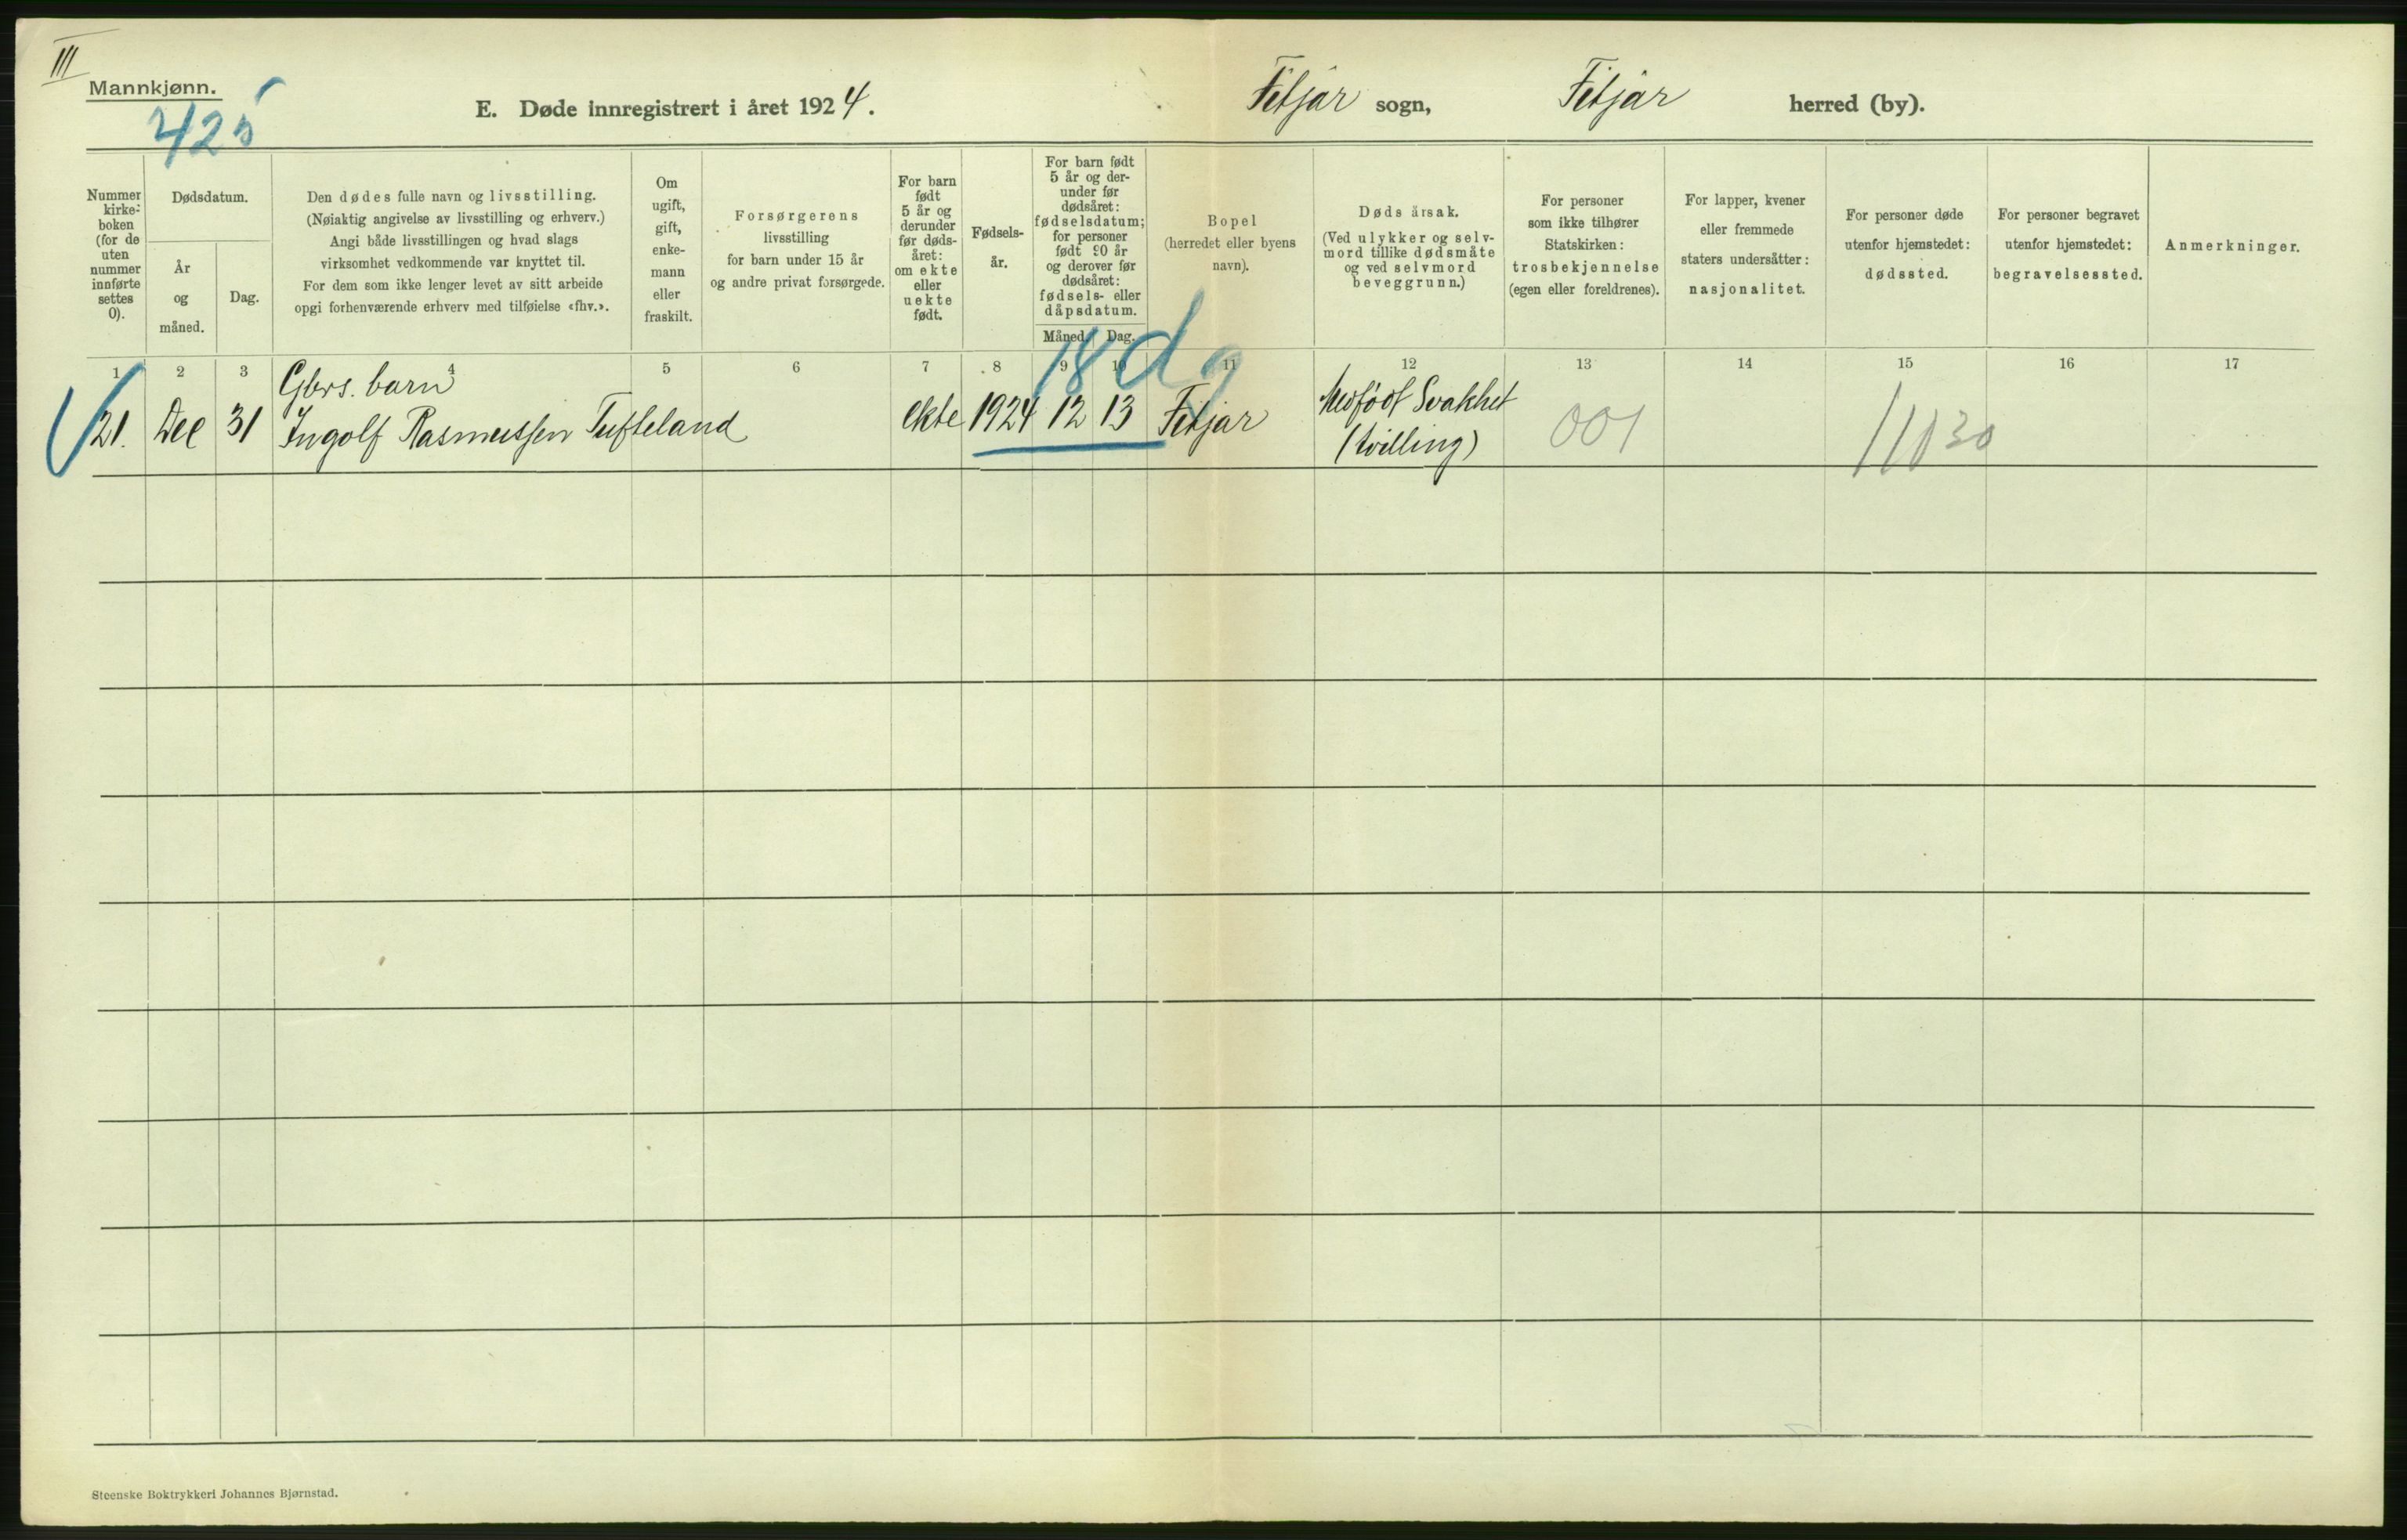 III
Mannkjønn.
425
E. Døde innregistrert i året 1924.
Fitjar sogn,
Fitjar herred (by).
Nummer
kirke-
boken
(for de
uten
nummer
innførte
settes
0).
Dødsdatum.
År
og
måned.
Dag.
Den dødes fulle navn og livsstilling.
(Nøiaktig angivelse av livsstilling og erhverv.)
Angi både livsstillingen og hvad slags
virksomhet vedkommende var knyttet til.
For dem som ikke lenger levet av sitt arbeide
opgi forhenværende erhverv med tilføielse «fhv.».
Om
ugift,
gift,
enke-
mann
eller
fraskilt.
Forsørgerens
livsstilling
for barn under 15 år
og andre privat forsørgede.
For barn
født
5 år og
derunder
før døds-
året:
om ekte
eller
uekte
født.
Fødsels-
år.
For barn født
5 år og der-
under før
dødsåret:
fødselsdatum;
for personer
født 90 år
og derover før
dødsåret:
fødsels- eller
dåpsdatum.
Måned. Dag.
Bopel
(herredet eller byens
navn).
Døds årsak.
(Ved ulykker og selv-
mord tillike dødsmåte
og ved selvmord
beveggrunn.)
For personer
som ikke tilhører
Statskirken:
trosbekjennelse
(egen eller foreldrenes).
For lapper, kvener
eller fremmede
staters undersåtter:
nasjonalitet.
For personer døde
utenfor hjemstedet:
dødssted.
For personer begravet
utenfor hjemstedet:
begravelsessted.
Anmerkninger.
18 dg
1 2 3 4 5 6 7 8 9 10 11 12 13 14 15 16 17
Gbrs. barn
21. Dec 31 Ingolf Rasmussen Tufteland ekte 1924 12 13 Fitjar Medfödt Svakhet
(tvilling)
001
11030
Steenske Boktrykkeri Johannes Bjørnstad.